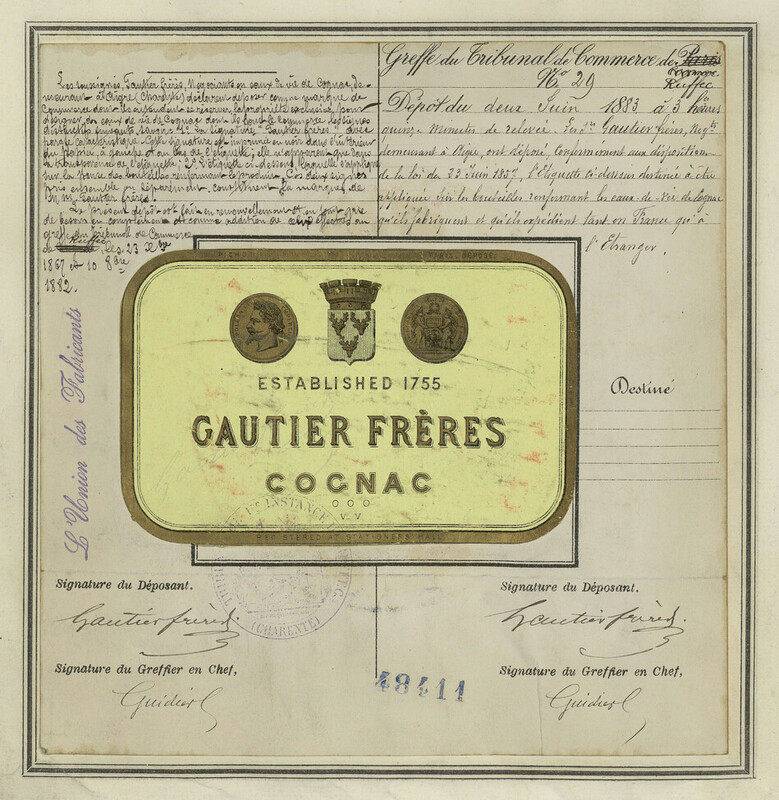 Les soussignés, Gautier frères, Négociants en eaux de vie de Cognac, de-
meurant à Aigre (Charente) déclarent déposer comme marque de
Commerce dont ils entendent se réserver la propriété exclusive, pour
désigner les eaux de vie de Cognac dont ils font le commerce, les signes
distinctifs suivants, savoir: 1° La signature "Gautier frères" avec
parafe caractéristique. Cette signature est imprimée en noir dans
du papier, à gauche et au bas de l'étiquette; elle n'apparent que dans
de l'étiquette; 2° L'étiquette ci-dessous, laquelle s'applique
sur la panse des bouteilles renfermant le produit. Ces deux signes
pris ensemble ou séparément, constituent la marque de
M.M. Gautier frères.
Le présent dépôt est fait en renouvellement et en tant que
de besoin en complément et comme addition de ceux effectués au
greffe du Tribunal de Commerce
de Ruffec, les 23 Xbre
1867 et 10 8bre
1882.
Greffe du Tribunal de Commerce de Paris
Ruffec
No 29
Dépôt du deux Juin 1883 à 3 heures
quinze minutes de relevée. Gautier frères, Négts
demeurant à Aigre, ont déposé, conformément aux disposition
de la loi du 23 Juin 1857, l'Etiquette ci-dessous destinée à être
appliquée sur les bouteilles renfermant les eaux-de-vie de Cognac
qu'ils fabriquent et qu'ils expédient tant en France qu'à
l'Etranger.
L'Union des Fabricants
ESTABLISHED 1755
GAUTIER FRÈRES
COGNAC
OOO
V V
REGISTERED AT STATIONERS HALL
Destiné
(CHARENTE)
Signature du Déposant.
Gautier frères.
Signature du Greffier en Chef,
Guidier
Signature du Déposant.
Gautier frères.
Signature du Greffier en Chef,
Guidier
48411